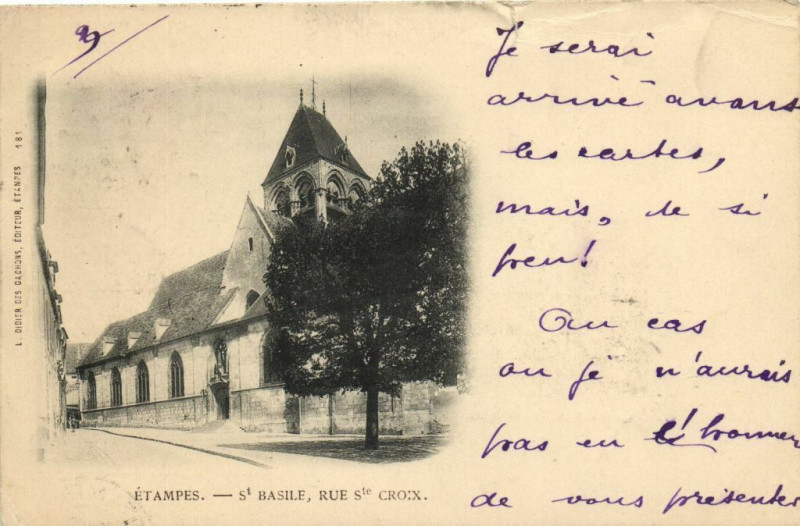 Je serai
arrivé avant
les cartes,
mais, de si
peu!
Au cas
ou je n'aurais
pas eu l'honneur
de vous présenter
L. DIDIER DES GACHONS, ÉDITEUR, ÉTAMPES 181
ÉTAMPES. — St BASILE, RUE Ste CROIX.